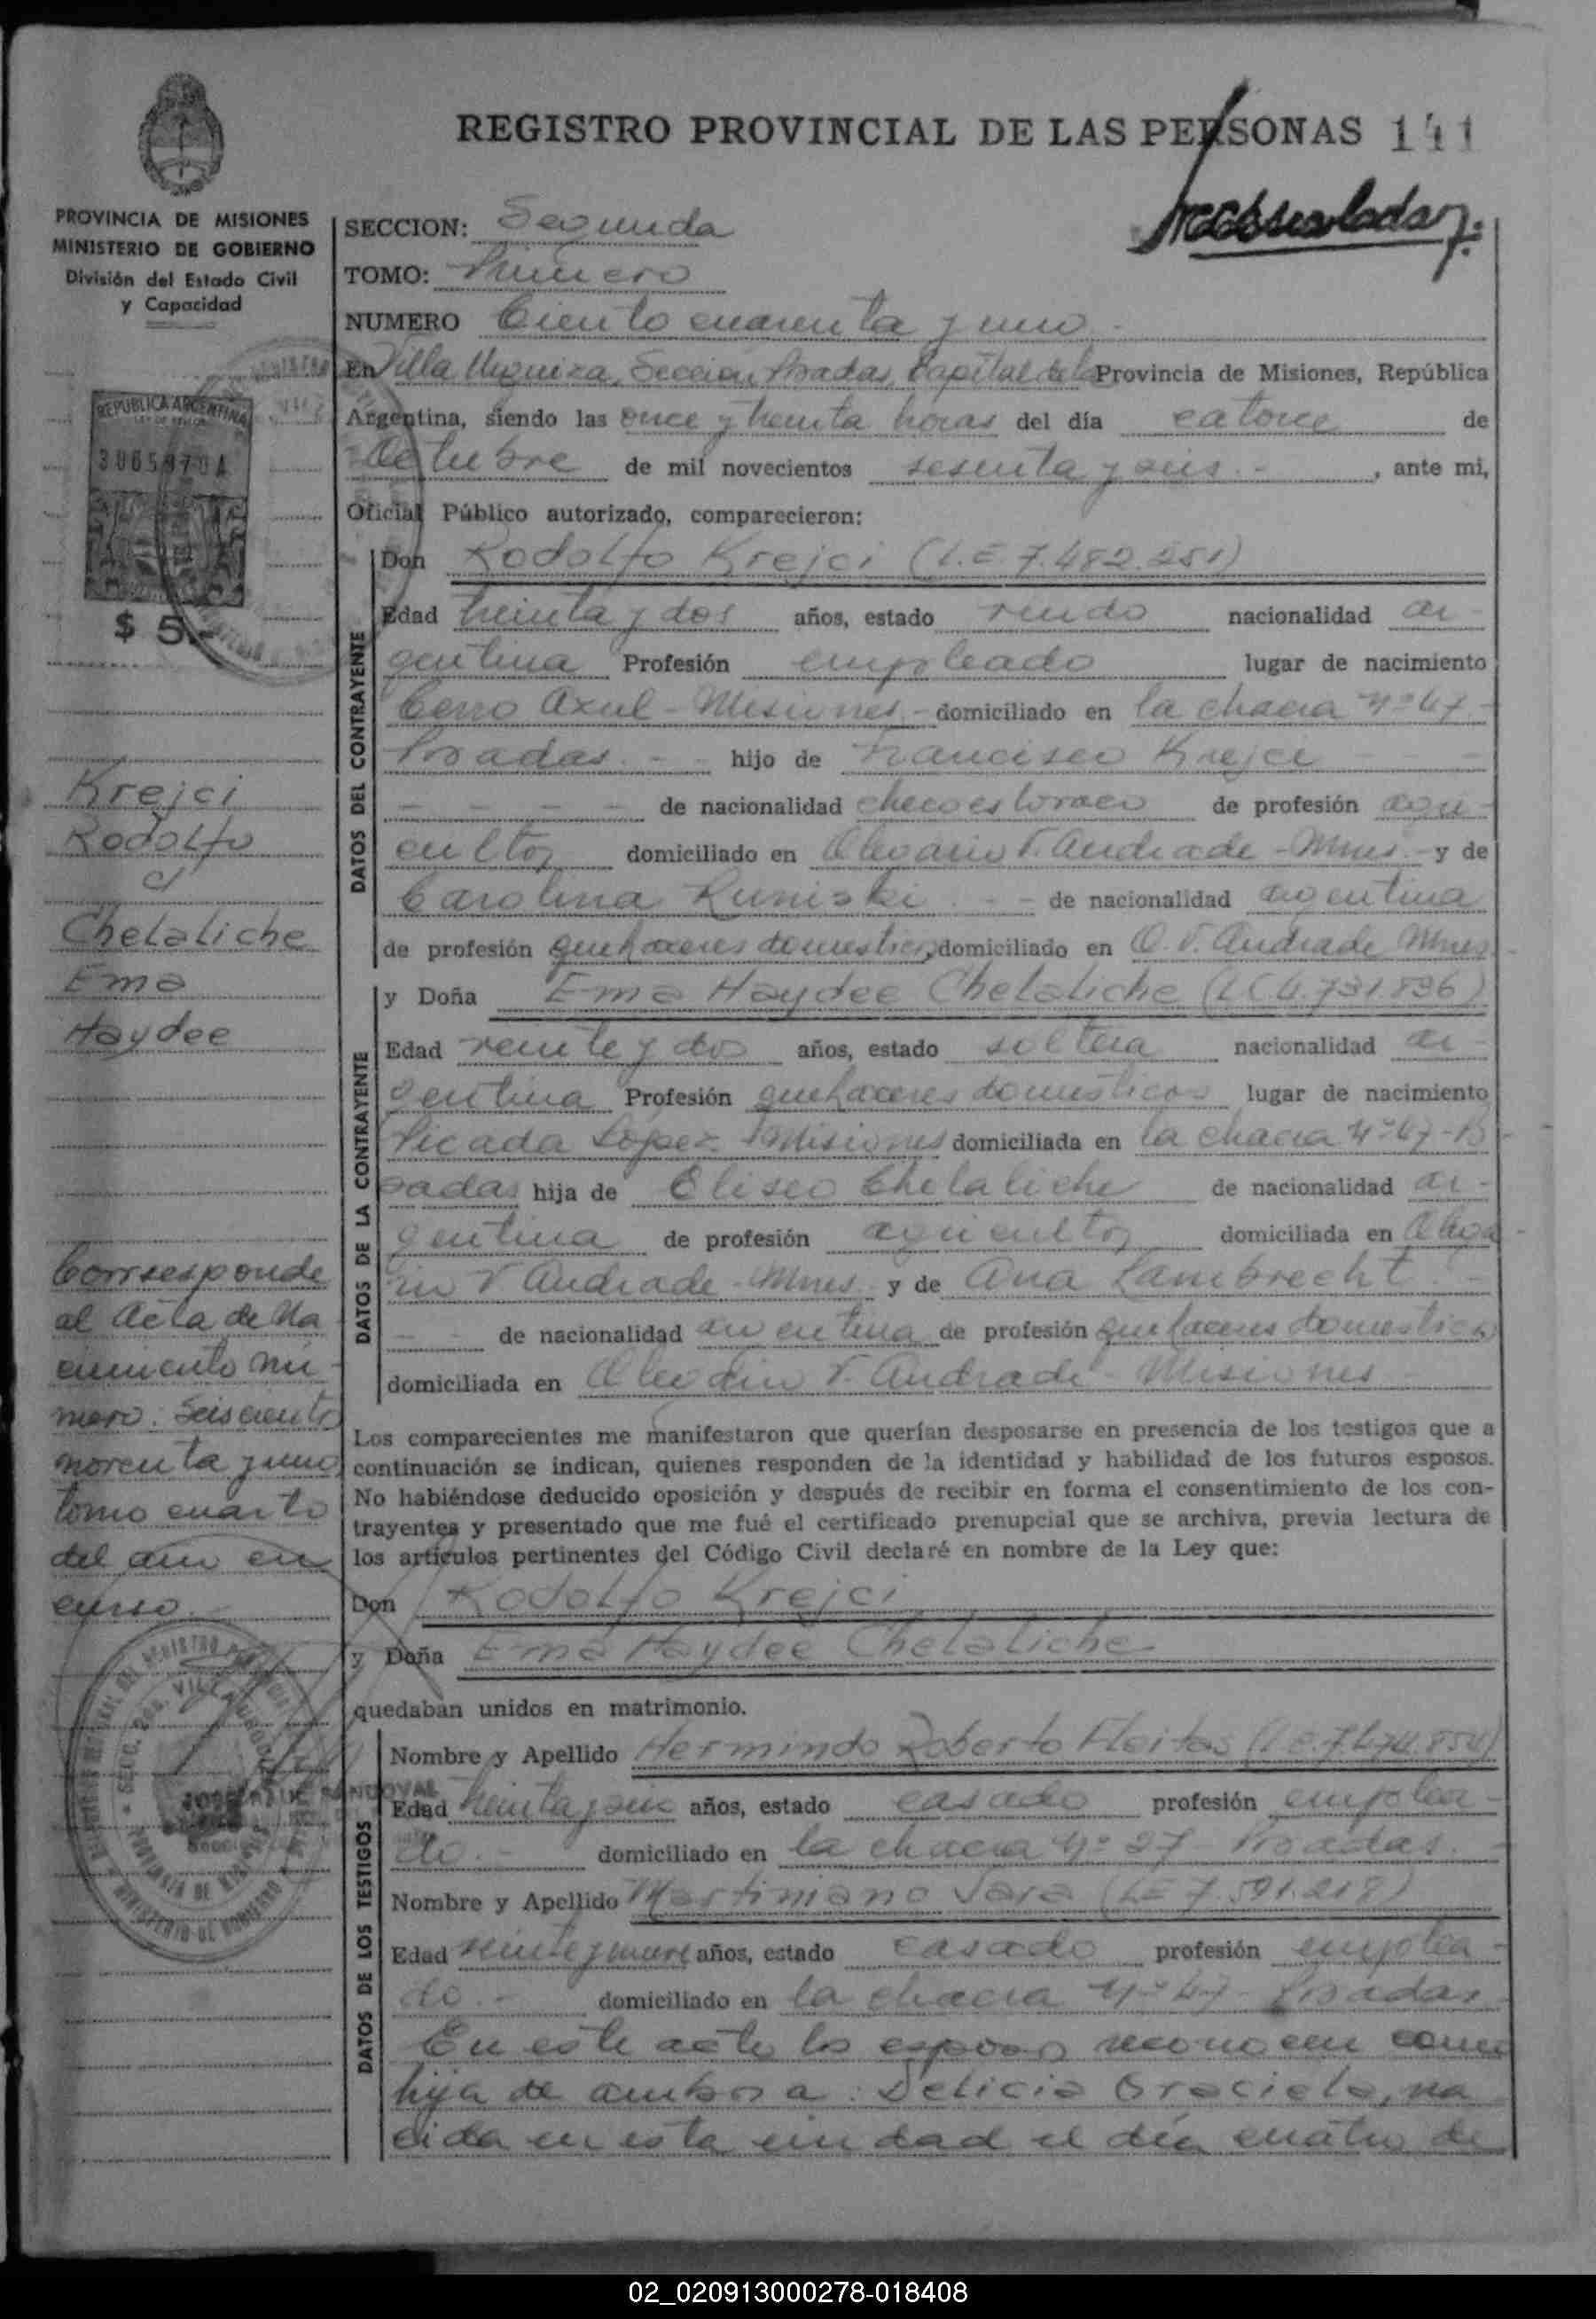 REGISTRO PROVINCIAL DE LAS PERSONAS 141
PROVINCIA DE MISIONES
MINISTERIO DE GOBIERNO
División del Estado Civil
y Capacidad
REPUBLICA ARGENTINA
$ 5.-
Krejci
Rodolfo
c/
Chelaliche
Ema
Haydee
Corresponde
al Acta de Na
cimiento nú
mero: Seiscientos
noventa y uno
tomo cuarto
del año en
curso.
SECCION: Segunda
TOMO: Primero
NUMERO Ciento cuarenta y uno.-
En Villa Urquiza, Sección Posadas, Capital de la Provincia de Misiones, República
Argentina, siendo las once y treinta horas del día catorce de
Octubre de mil novecientos sesenta y seis.-, ante mi,
Oficial Público autorizado, comparecieron:
DATOS DEL CONTRAYENTE
Don Rodolfo Krejci (L.E 7.482.251)
Edad treinta y dos años, estado viudo nacionalidad ar-
gentina Profesión empleado lugar de nacimiento
Cerro Azul - Misiones - domiciliado en la chacra Nº 47-
Posadas.- - hijo de Francisco Krejci - - -
- - - - de nacionalidad checoeslovaco de profesión agri-
cultor domiciliado en Olegario V. Andrade - Mnes.- y de
Carolina Kuniski - - de nacionalidad argentina
de profesión quehaceres domesticos, domiciliado en O. V. Andrade Mnes
DATOS DE LA CONTRAYENTE
y Doña Ema Haydee Chelaliche (LC 4.731.836)
Edad veinte y dos años, estado soltera nacionalidad ar-
gentina Profesión quehaceres domesticos lugar de nacimiento
Picada López - Misiones domiciliada en la chacra Nº 47 - Po
sadas hija de Eliseo Chelaliche de nacionalidad ar-
gentina de profesión agricultor domiciliada en Olega-
rio V. Andrade - Mnes.- y de Ana Lambrecht.-
- - de nacionalidad argentina de profesión quehaceres domesticos
domiciliada en Olegario V. Andrade - Misiones -
Los comparecientes me manifestaron que querían desposarse en presencia de los testigos que a
continuación se indican, quienes responden de la identidad y habilidad de los futuros esposos.
No habiéndose deducido oposición y después de recibir en forma el consentimiento de los con-
trayentes y presentado que me fué el certificado prenupcial que se archiva, previa lectura de
los artículos pertinentes del Código Civil declaré en nombre de la Ley que:
Don Rodolfo Krejci
y Doña Ema Haydee Chelaliche
quedaban unidos en matrimonio.
DATOS DE LOS TESTIGOS
Nombre y Apellido Hermindo Roberto Fleitas (L.E. 7.474.854)
Edad treinta y seis años, estado casado profesión emplea-
do.- domiciliado en la chacra Nº 27 - Posadas.
Nombre y Apellido Martiniano Vera (LE 7.591.218)
Edad veinte y nueve años, estado casado profesión emplea-
do.- domiciliado en la chacra Nº 47 - Posadas
En este acto los esposos reconocen como
hija de ambos a: Delicia Graciela, na
cida en esta ciudad el día cuatro de
02_020913000278-018408